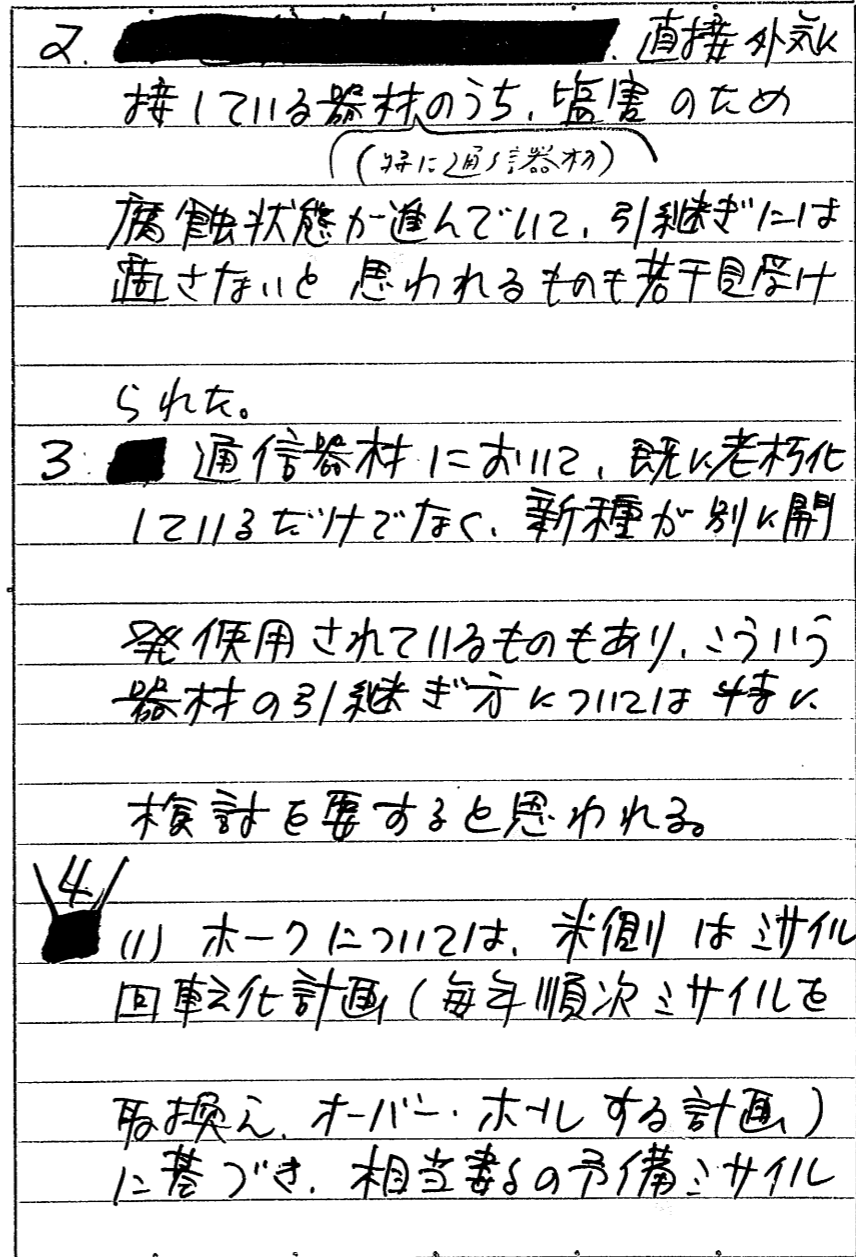 2. 直接外気に
接している器材のうち、塩害のため
(特に通信器材)
腐蝕状態が進んでいて、引継ぎには
適さないと思われるものも若干見受け
られた。
3. 通信器材において、既に老朽化
しているだけでなく、新種が別に開
発使用されているものもあり、こういう
器材の引継ぎ方については特に
検討を要すると思われる。
4
(1) ホークについては、米側はミサイル
回転化計画(毎年順次ミサイルを
取換え、オーバー・ホールする計画)
に基づき、相当数の予備ミサイル